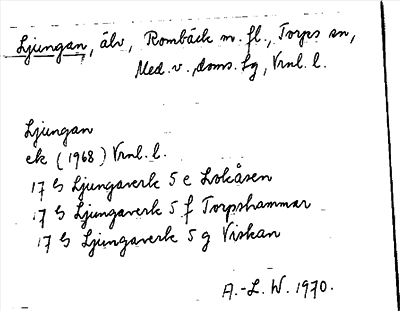 Ljungan, älv, Rombäck m. fl., Torps sn,
Med. v. doms. lg, Vrnl. l.
Ljungan
ek (1968) Vrnl. l.
17 G Ljungaverk 5 e Lokåsen
17 G Ljungaverk 5 f Torpshammar
17 G Ljungaverk 5 g Viskan
A.-L. W. 1970.